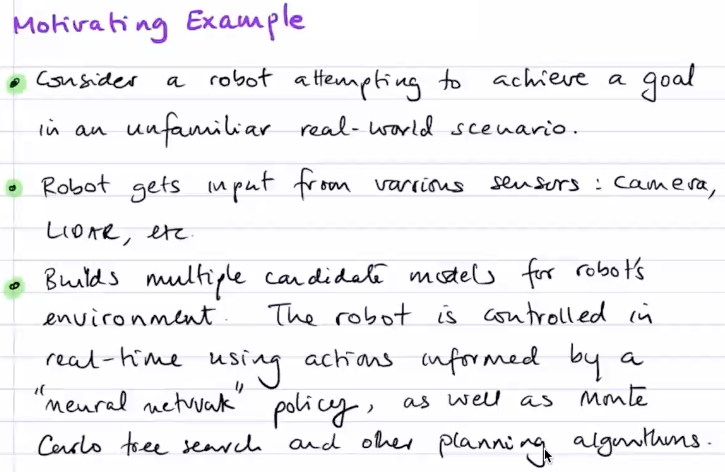 Motivating Example
Consider a robot attempting to achieve a goal
in an unfamiliar real-world scenario.
Robot gets input from various sensors : camera,
LIDAR, etc.
Builds multiple candidate models for robot's
environment. The robot is controlled in
real-time using actions informed by a
"neural network" policy, as well as Monte
Carlo tree search and other planning algorithms.